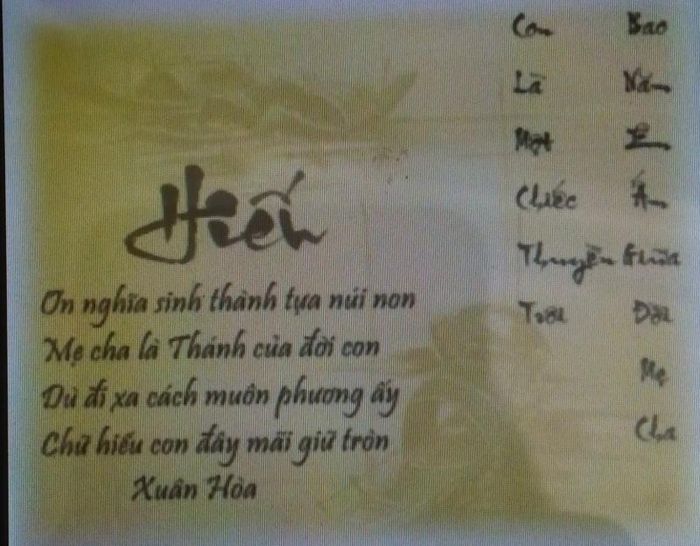 Hiếu
Ơn nghĩa sinh thành tựa núi non
Mẹ cha là Thánh của đời con
Dù đi xa cách muôn phương ấy
Chữ hiếu con đây mãi giữ tròn
Xuân Hòa
Con
Là
Một
Chiếc
Thuyền
Trôi
Bao
Năm
Ê
Ẩm
Giữa
Đời
Mẹ
Cha